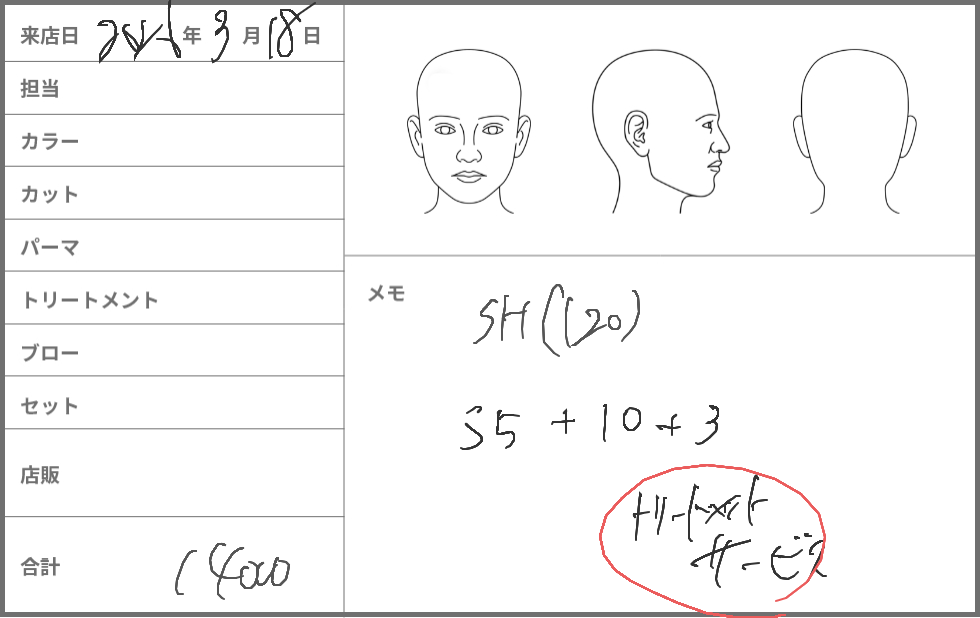 来店日 年 3 月 18 日
担当
カラー
カット
パーマ
トリートメント
ブロー
セット
店販
合計 14000
メモ
SH (120)
35 + 10 + 3
トリートメント
サービス